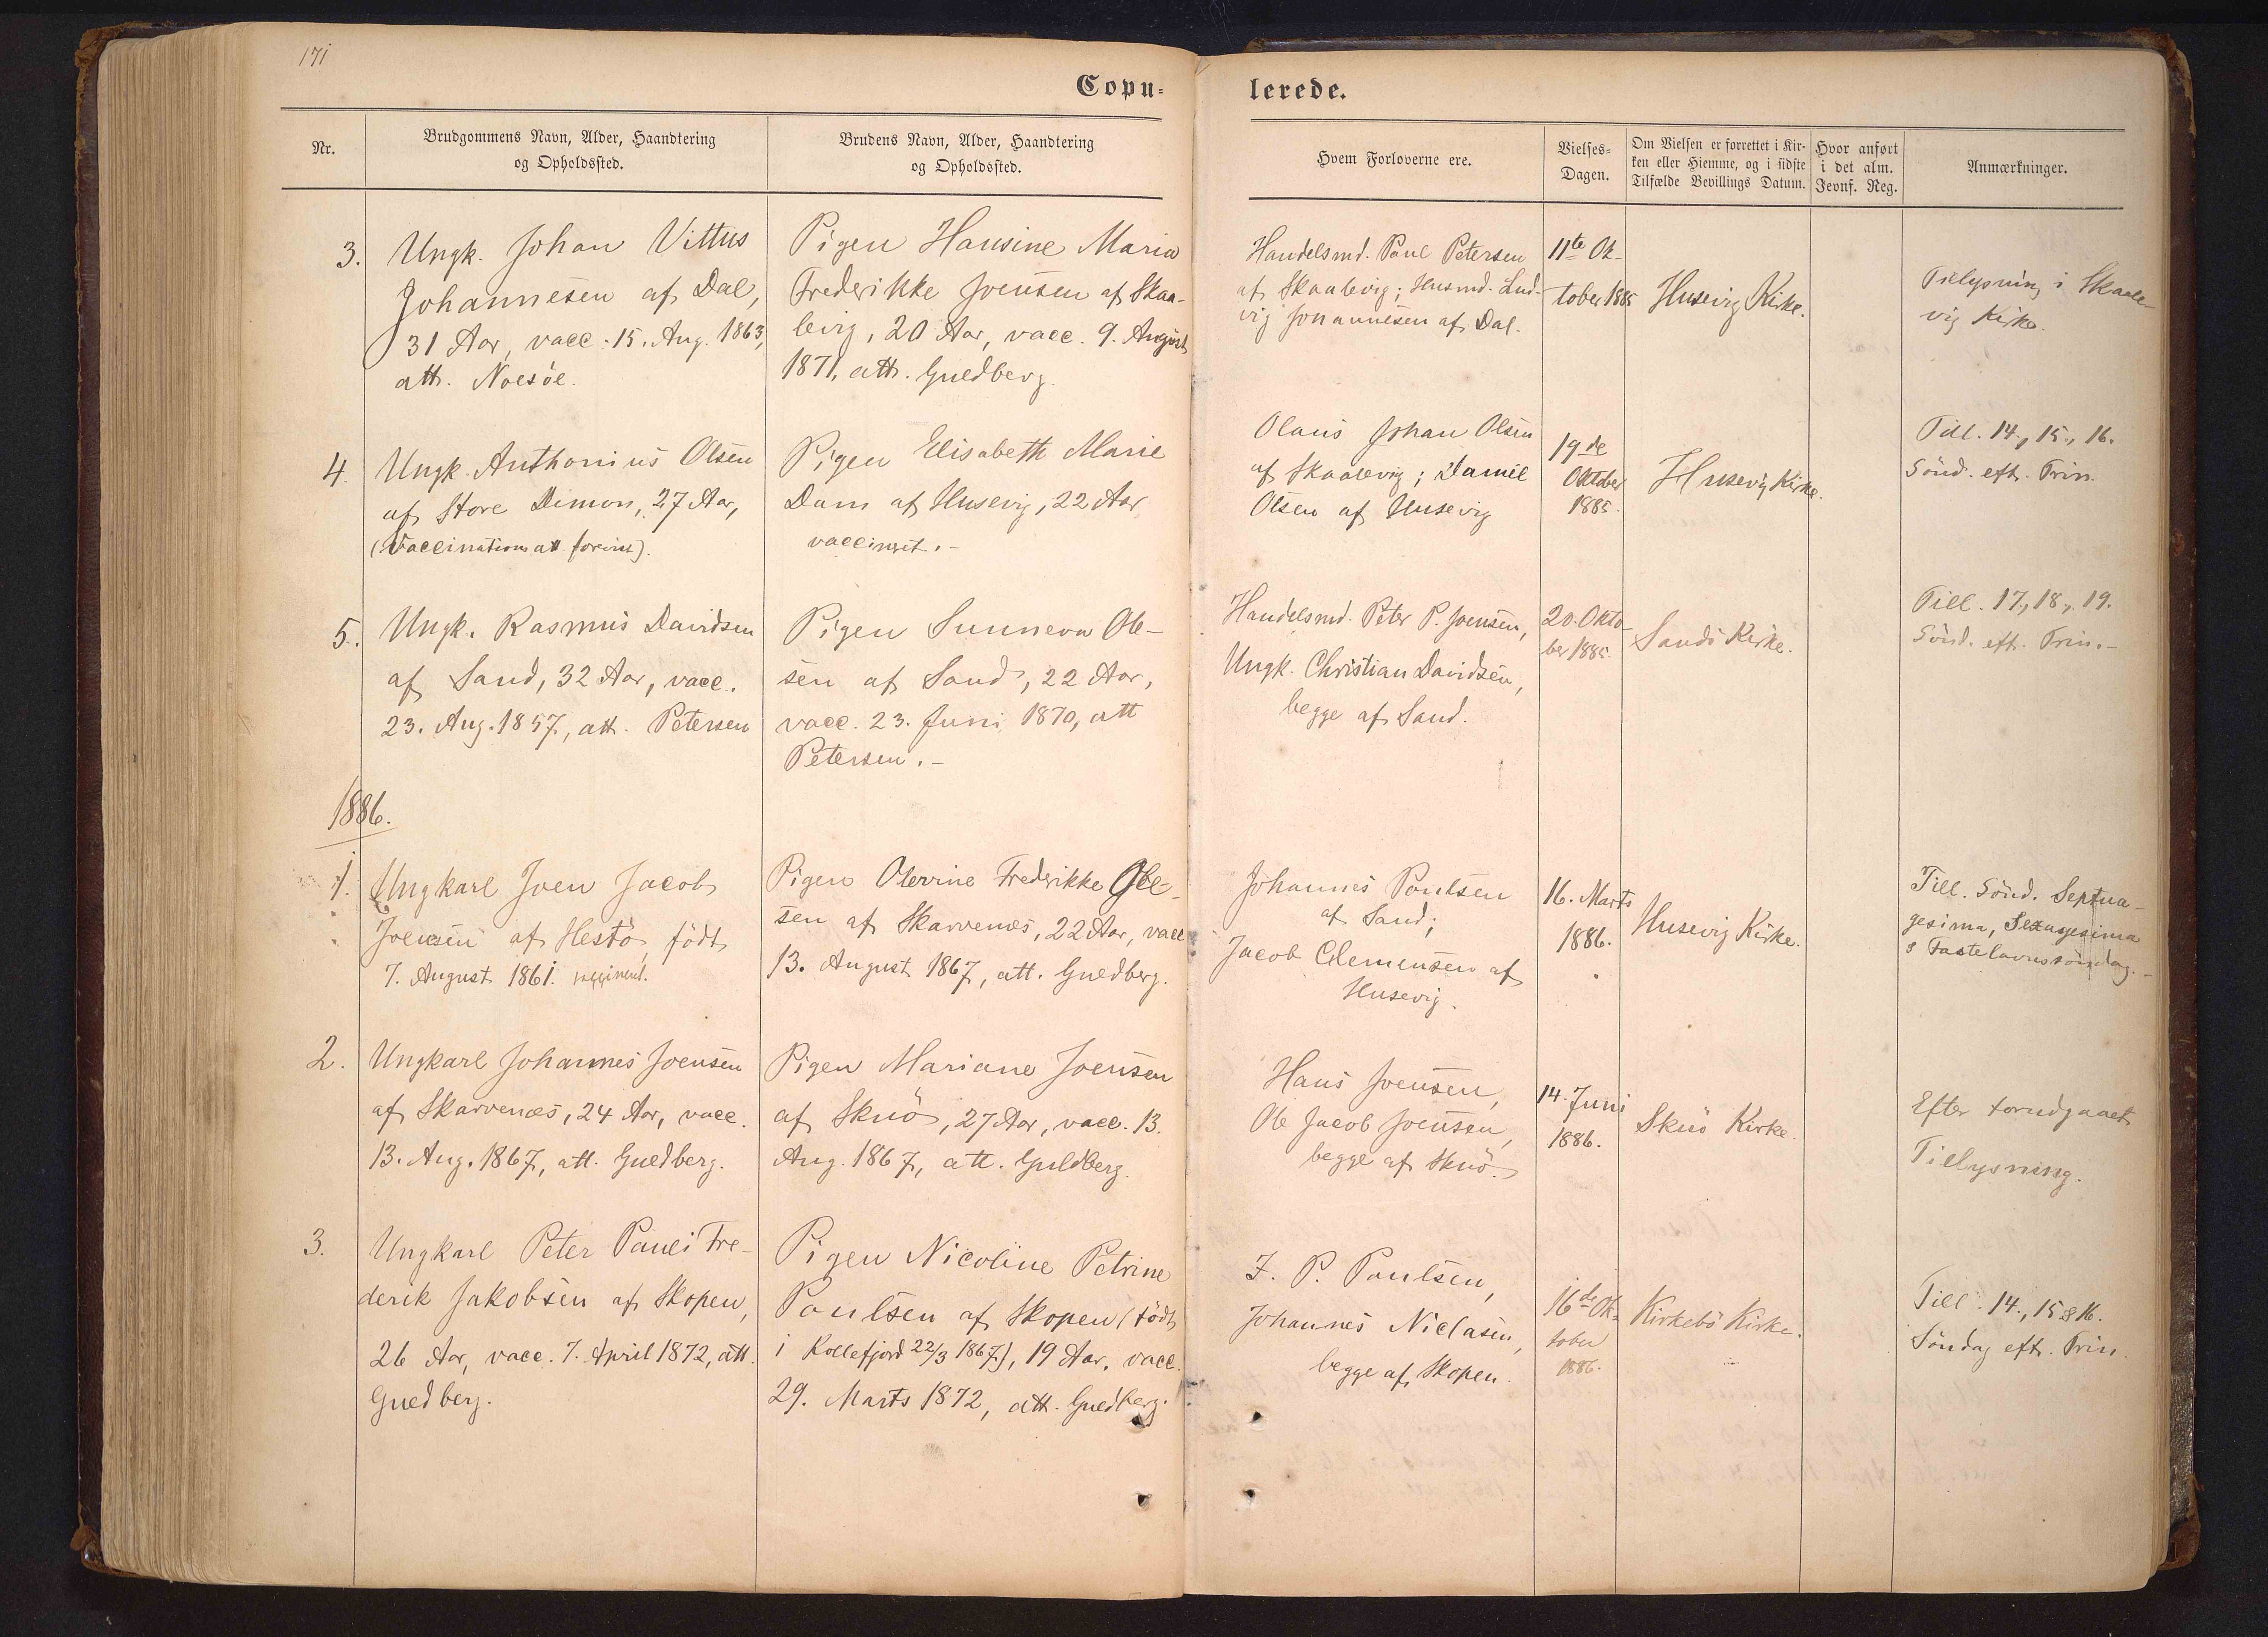 171
Copu-
lerede.
Nr.
Brudgommens Navn, Alder, Haandtering
og Opholdssted.
Brudens Navn, Alder, Haandtering
og Opholdssted.
Hvem Forloverne ere.
Vielses-
Dagen.
Om Vielsen er forrettet i Kir-
ken eller Hiemme, og i sidste
Tilfælde Bevillings Datum.
Hvor anført
i det alm.
Jevnf. Reg.
Anmærkninger.
3.
Ungk. Johan Vittus
Johannesen af Dal,
31 Aar, vacc. 15. Aug. 1863,
att. Nolsöe.
Pigen Hansine Maria
Frederikke Joensen af Skaa-
levig, 20 Aar, vacc. 9. August
1871, att. Guldberg.
Handelsmd. Poul Petersen
af Skaalevig; Husmd. Lud-
vig Johannesen af Dal.
11te Ok-
tober 1885
Husevig Kirke.
Tillysning i Skaale-
vig Kirke.
4.
Ungk. Anthonius Olsen
af Store Dimon, 27 Aar,
(Vaccinationsatt. forevist).
Pigen Elisabeth Marie
Dam af Husevig, 22 Aar
vaccineret.-
Olaus Johan Olsen
af Skaalevig; Daniel
Olsen af Husevig
19de
Oktober
1885.
Husevig Kirke.
Till. 14., 15., 16.
Sönd. eft. Trin.
5.
Ungk. Rasmus Davidsen
af Sand, 32 Aar, vacc.
23. Aug. 1857, att. Petersen
Pigen Sunneva Ole-
sen af Sand, 22 Aar,
vacc. 23. Juni 1870, att
Petersen.-
Handelsmd. Peter P. Joensen,
Ungk. Christian Davidsen,
begge af Sand.
20. Okto-
ber 1885.
Sands Kirke.
Till. 17., 18., 19.
Sönd. eft. Trin.-
1886.
1.
Ungkarl Joen Jacob
Joensen af Hestö, födt
7. August 1861. vaccineret.
Pigen Olevine Frederikke Ole-
sen af Skarvenæs, 22 Aar, vacc
13. August 1867, att. Guldberg.
Johannes Poulsen
af Sand;
Jacob Clemensen af
Husevig.
16. Marts
1886.
Husevig Kirke.
Till. Sönd. Septua-
gesima, Sexagesima
& Fastelavnssöndag.-
2.
Ungkarl Johannes Joensen
af Skarvenæs, 24 Aar, vacc.
13. Aug. 1867, att. Guldberg.
Pigen Mariane Joensen
af Skuö, 27 Aar, vacc. 13.
Aug. 1867, att. Guldberg.
Hans Joensen,
Ole Jacob Joensen,
begge af Skuö.
14. Juni
1886.
Skuö Kirke.
Efter forudgaaet
Tillysning.
3.
Ungkarl Peter Pauli Fre-
derik Jakobsen af Skopen,
26 Aar, vacc. 7. April 1872, att.
Guldberg.
Pigen Nicoline Petrine
Poulsen af Skopen (födt
i Kollefjord 22/3 1867), 19 Aar, vacc.
29. Marts 1872, att. Guldberg.
J. P. Poulsen,
Johannes Niclasen,
begge af Skopen.
16de Ok-
tober
1886.
Kirkebö Kirke.
Till. 14., 15 & 16.
Söndag eft. Trin.